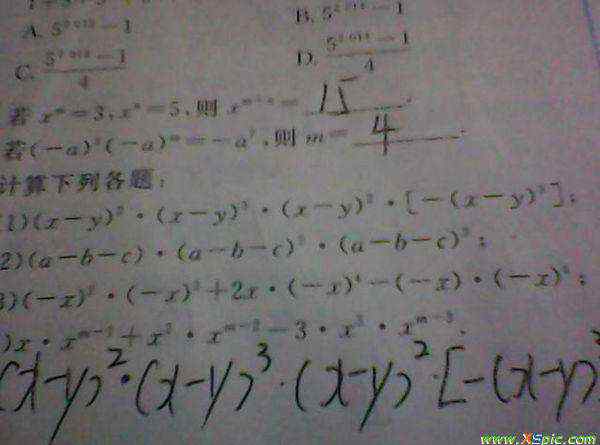 A. 5²⁰¹²−1
B. 5²⁰¹³−1
C. (5²⁰¹³−1)/4
D. (5²⁰¹²−1)/4
若 xᵐ=3,xⁿ=5,则 xᵐ⁺ⁿ= 15 .
若(−a)³(−a)ᵐ=−a⁷,则 m= 4 .
计算下列各题:
1)(x−y)²·(x−y)³·(x−y)²·[−(x−y)³];
2)(a−b−c)·(a−b−c)²·(a−b−c)³;
3)(−x)²·(−x)³+2x·(−x)⁴−(−x)·(−x)⁴;
)x·xᵐ⁻¹+x²·xᵐ⁻²−3·x³·xᵐ⁻³.
(x−y)²·(x−y)³·(x−y)²·[−(x−y)
www.XSpic.com